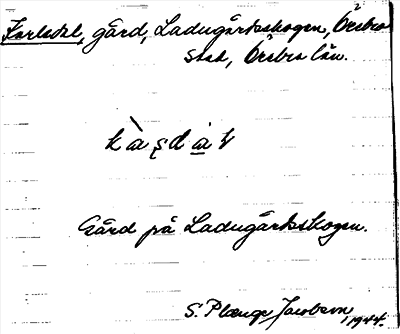 Karlsdal, gård, Ladugårdsskogen, Örebro
stad, Örebro län.
Gård på Ladugårdsskogen.
S. Plænge Jacobson, 1944.